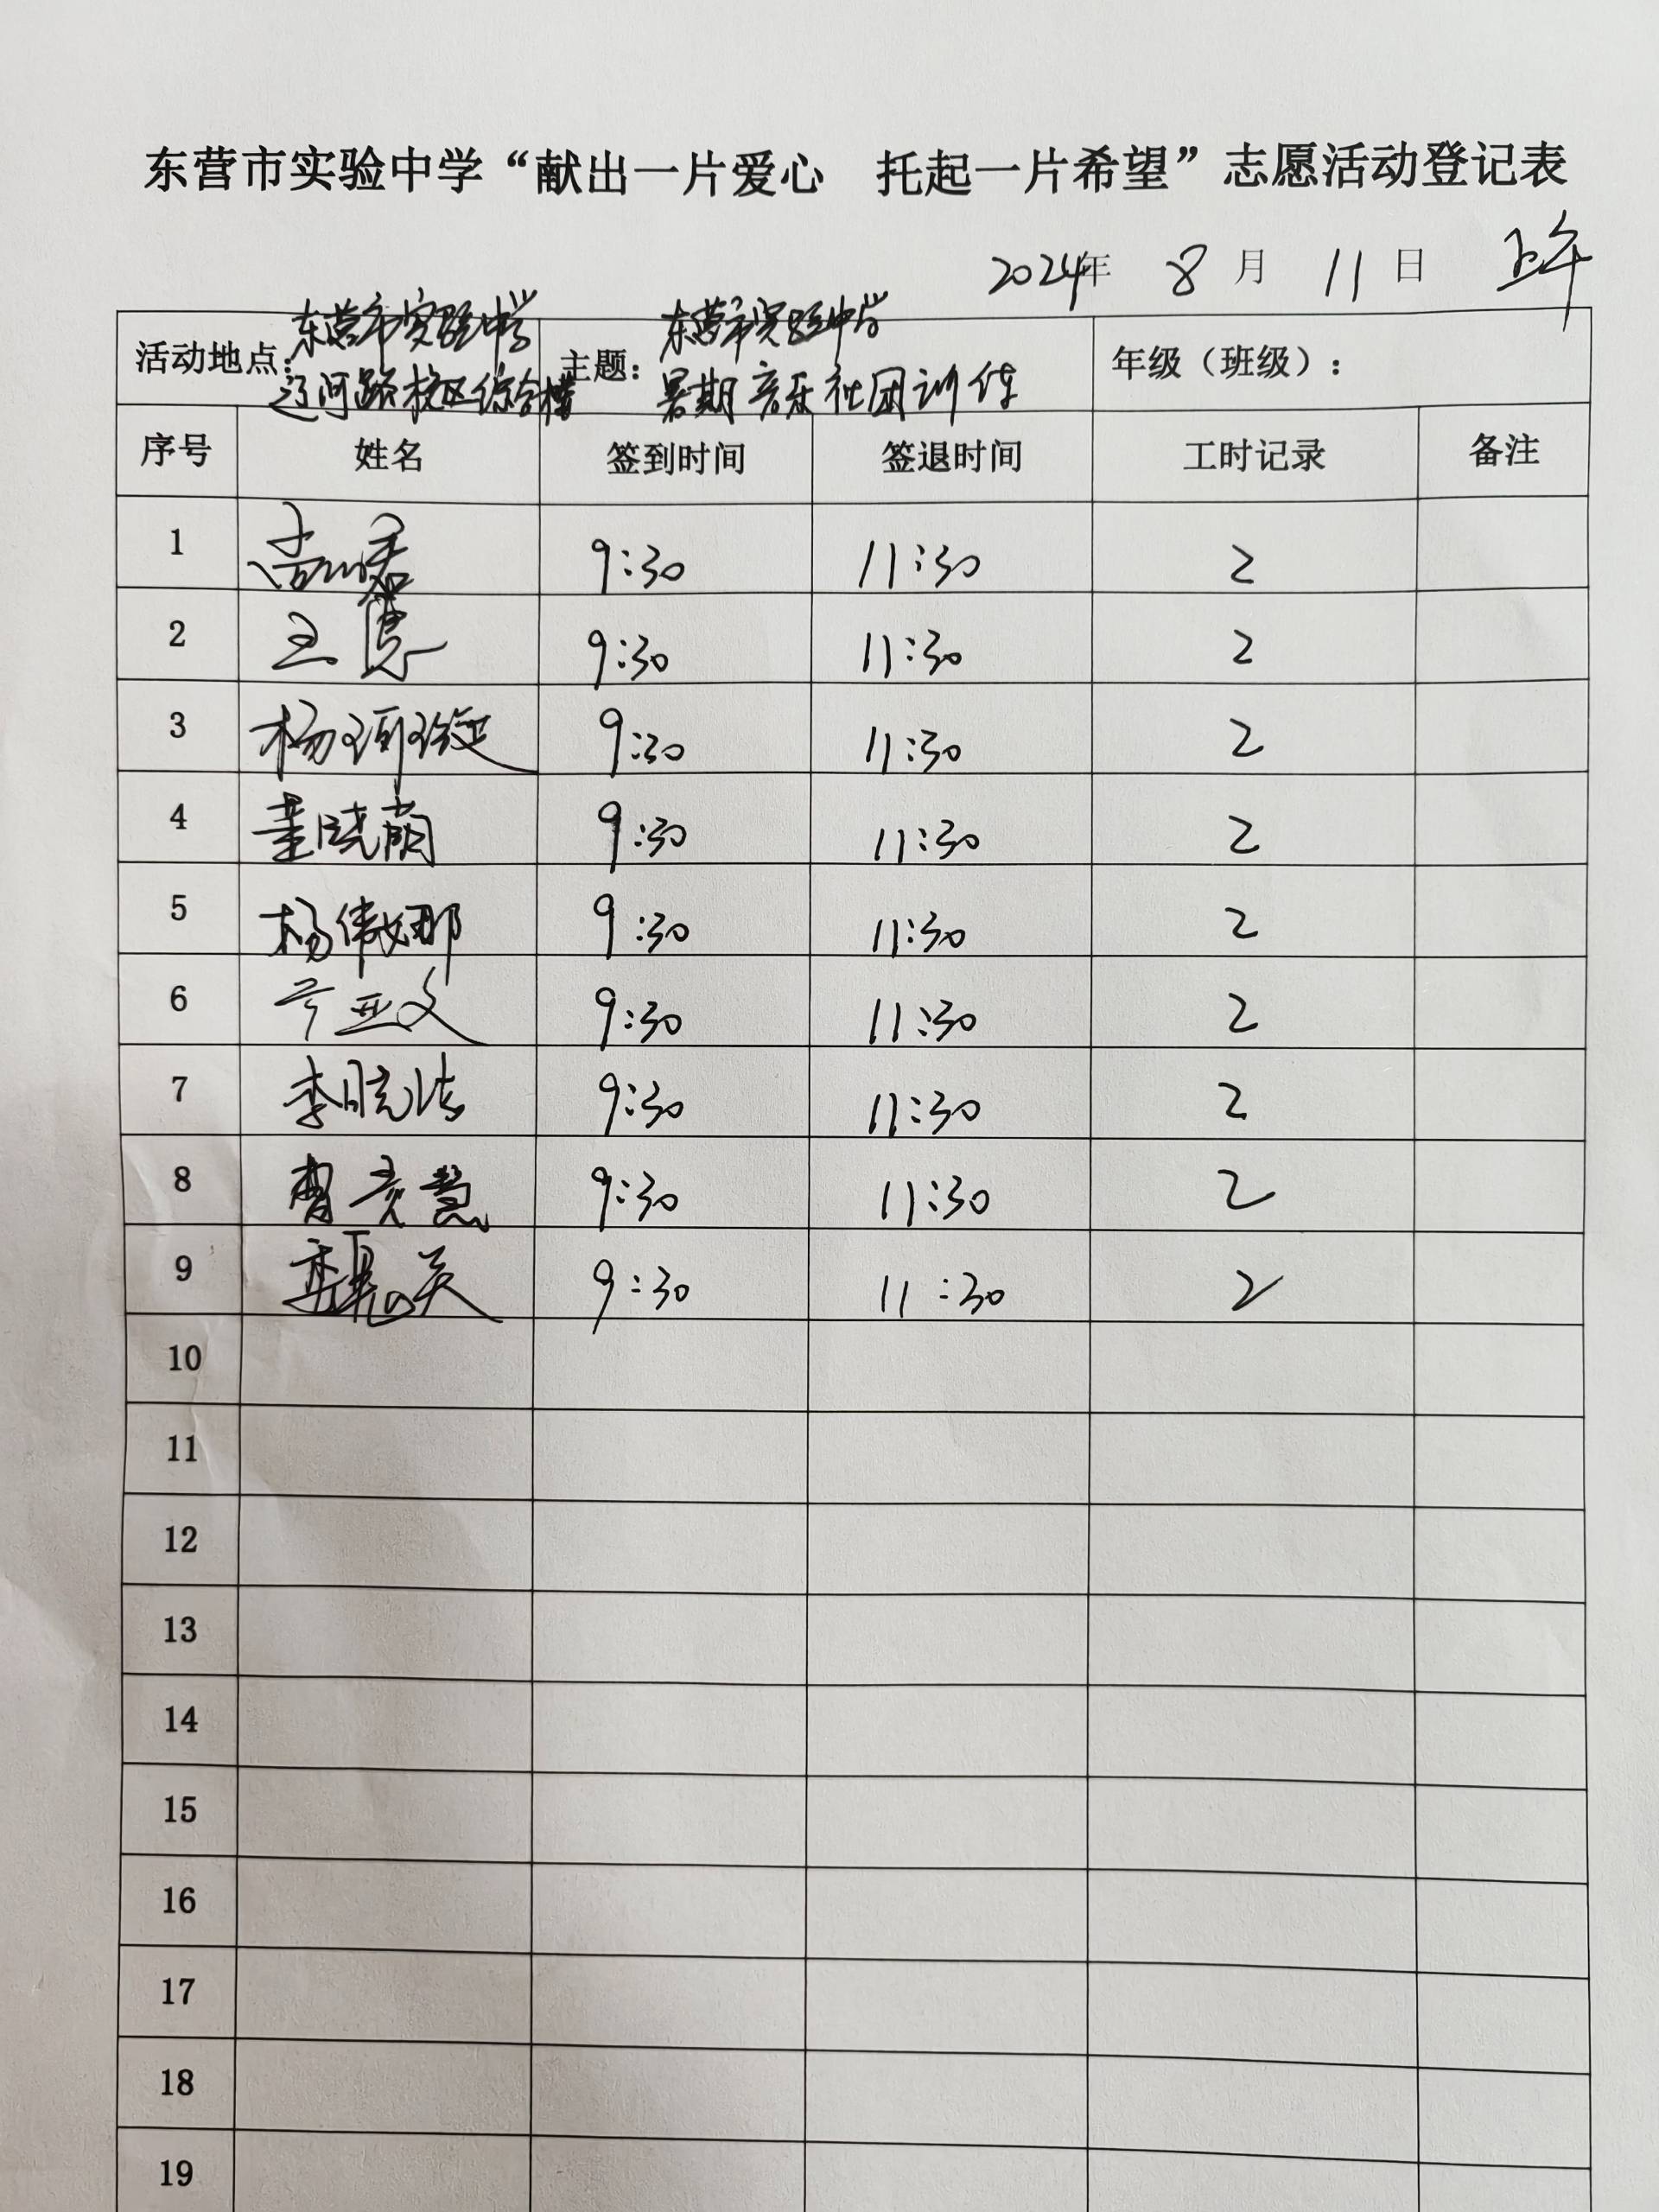 东营市实验中学“献出一片爱心　托起一片希望”志愿活动登记表
2024年 8 月 11 日 上午
活动地点：东营市实验中学辽河路校区综合楼 主题：东营市实验中学暑期音乐社团训练 年级（班级）：
序号 姓名 签到时间 签退时间 工时记录 备注
1 9:30 11:30 2
2 王 9:30 11:30 2
3 杨 9:30 11:30 2
4 董晓萌 9:30 11:30 2
5 杨傲娜 9:30 11:30 2
6 亚文 9:30 11:30 2
7 李晓洁 9:30 11:30 2
8 曹彦慧 9:30 11:30 2
9 9:30 11:30 2
10
11
12
13
14
15
16
17
18
19